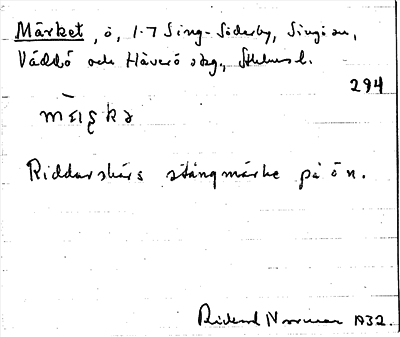 Märket, ö, 1-7 Sing-Söderby, Singö sn,
Väddö och Häverö skg., Sthlms l.
294
Riddarskärs stångmärke på ön.
Rickard 1932.